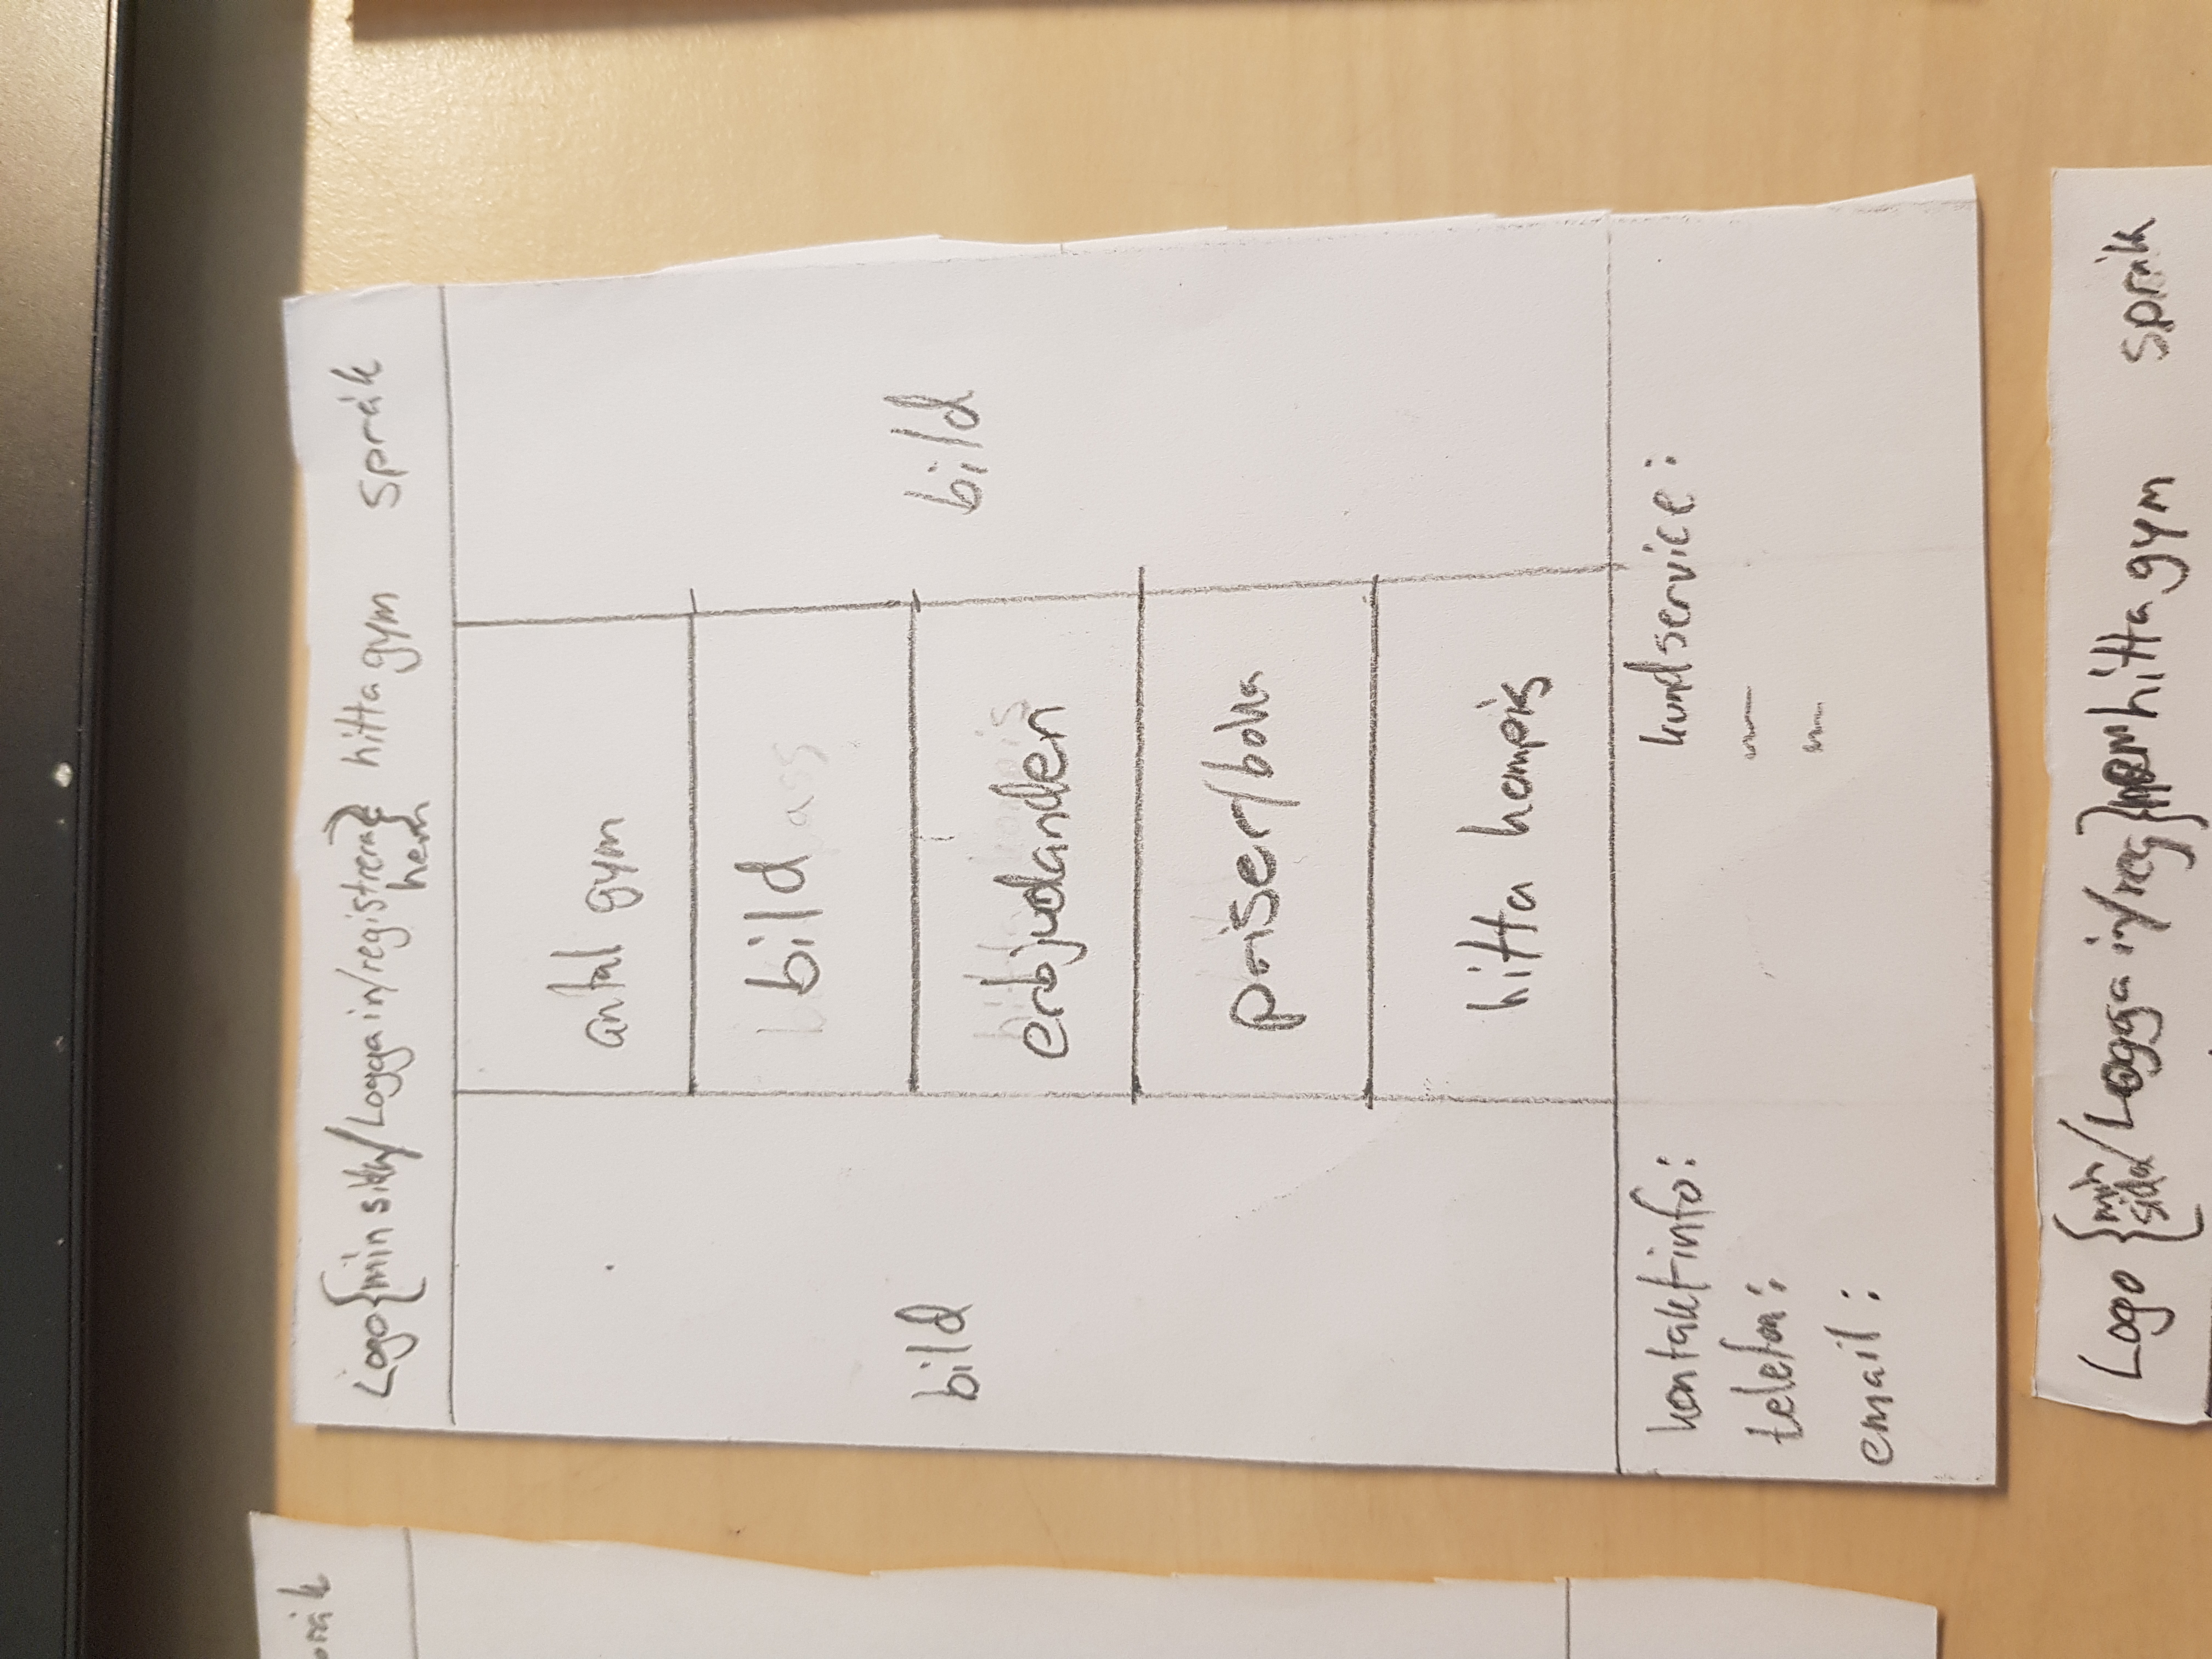 Logo {min sida/Logga in/registrera} hitta gym språk
hem
bild
antal gym
bild
erbjudanden
priser/boka
hitta kompis
bild
kontaktinfo:
telefon:
email:
kundservice:
Logo {min sida/Logga in/reg} hem hitta gym språk